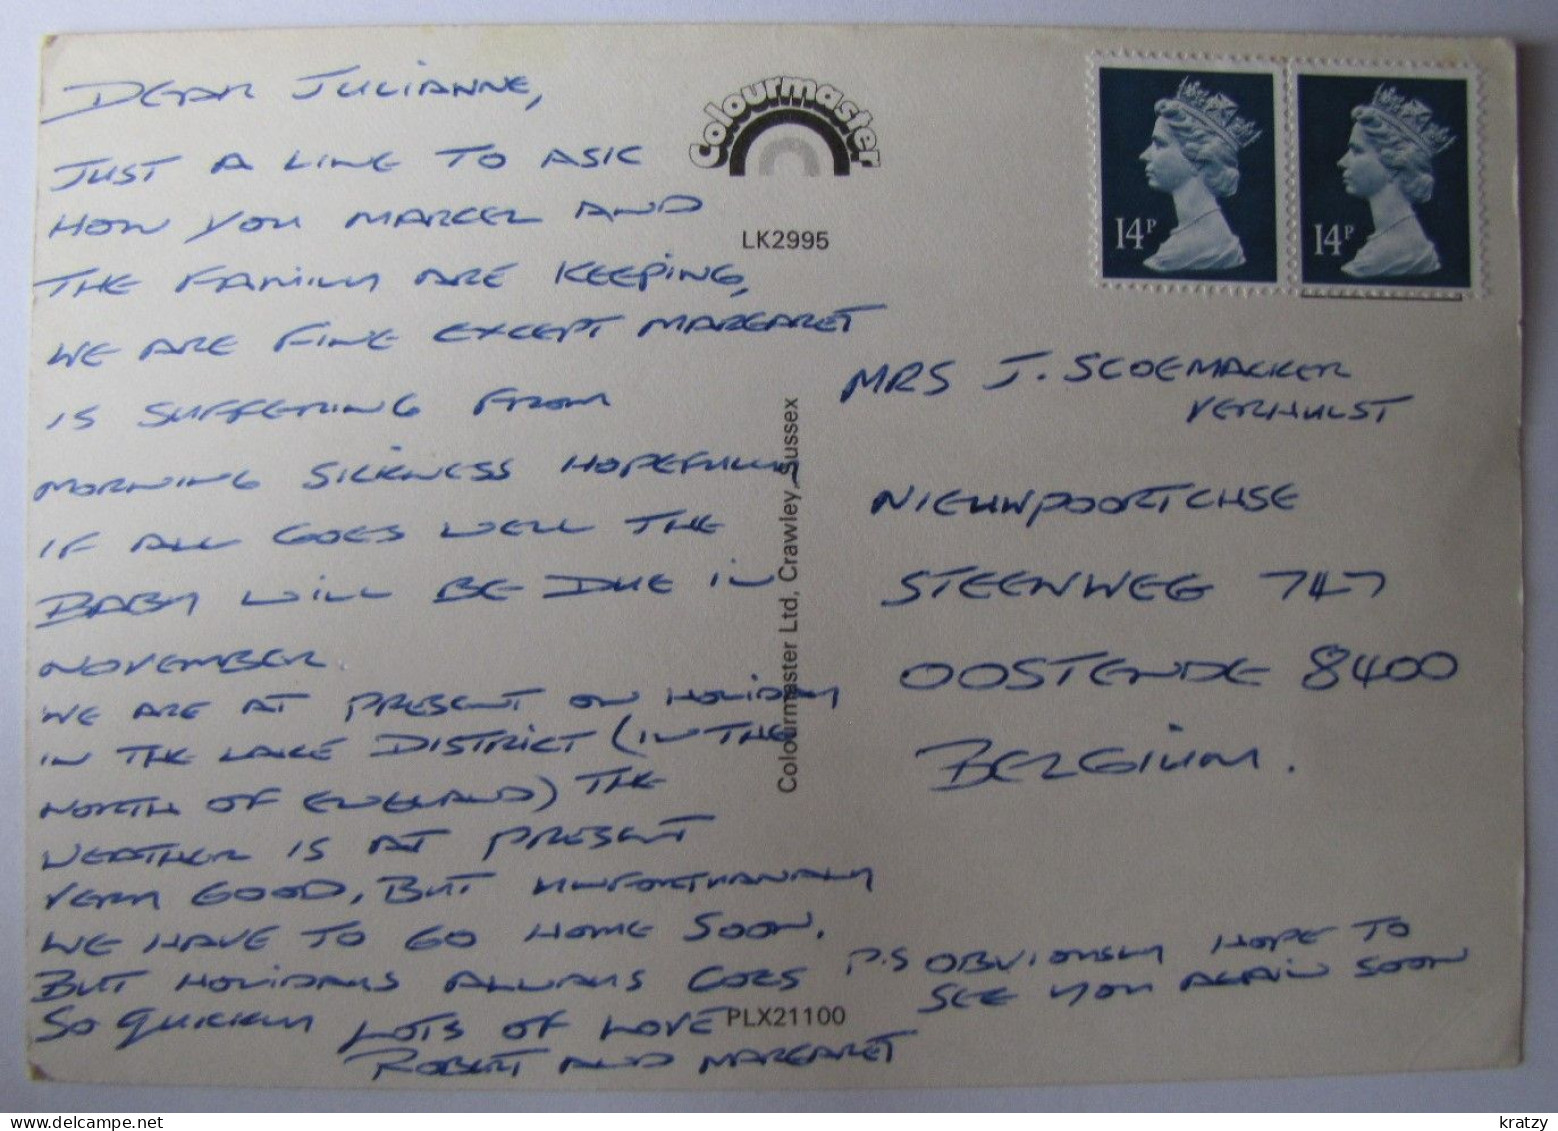 DEAR JULIANNE,
JUST A LINE TO ASK
HOW YOU MARCEL AND
THE FAMILY ARE KEEPING,
WE ARE FINE EXCEPT MARGARET
IS SUFFERING FROM
MORNING SICKNESS HOPEFULLY
IF ALL GOES WELL THE
BABY WILL BE DUE IN
NOVEMBER
WE ARE AT PRESENT ON HOLIDAY
IN THE LAKE DISTRICT (IN THE
NORTH OF ENGLAND) THE
WEATHER IS AT PRESENT
VERY GOOD, BUT UNFORTUNANALY
WE HAVE TO GO HOME SOON.
BUT HOLIDAYS ALWAYS GOES
SO QUICKLY LOTS OF LOVE
ROBERT AND MARGARET
P.S OBVIOUSLY HOPE TO
SEE YOU AGAIN SOON
Colourmaster
LK2995
Colourmaster Ltd, Crawley, Sussex
PLX21100
14P
14P
MRS J. SCOEMACKER
VERHULST
NIEUWPOORTCHSE
STEENWEG 747
OOSTENDE 8400
BELGIUM.
kratzy